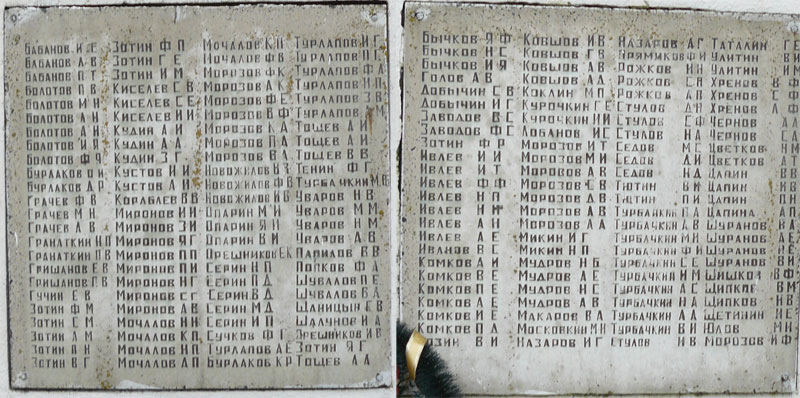 БАБАНОВ И Е ЗОТИН Ф П МОЧАЛОВ К Н ТУРЛАПОВ И Г
БАБАНОВ А В ЗОТИН Г Е МОЧАЛОВ ТУРЛАПОВ П Г
БАБАНОВ П Т ЗОТИН И М МОРОЗОВ Ф К ТУРЛАПОВ Ф А
БОЛОТОВ П В КИСЕЛЕВ С В МОРОЗОВ А К ТУРЛАПОВ
БОЛОТОВ И Н КИСЕЛЕВ С Е МОРОЗОВ Ф Е ТУРЛАПОВ З В
БОЛОТОВ А Н КИСЕЛЕВ И И МОРОЗОВ В Ф ТУРЛАПОВ М
БОЛОТОВ А Н КУДИН А И МОРОЗОВ К А ТОЩЕВ А И
БОЛОТОВ И Я КУДИН А А МОРОЗОВ П А ТОЩЕВ А И
БОЛОТОВ Ф Ф КУДИН З Г МОРОЗОВ В А ТОЩЕВ В В
БУРЛАКОВ И КУСТОВ И И НОВОЖИЛОВ В З ТЕНИН Ф Г
БУРЛАКОВ А Р КУСТОВ А И НОВОЖИЛОВ Ф В ТУРБАЧКИН М
ГРАЧЕВ Ф В КОРАБЛЕВ В В НОВОЖИЛОВ УВАРОВ Н В
ГРАЧЕВ М Н МИРОНОВ И И ОПАРИН М И УВАРОВ М М
ГРАЧЕВ А В МИРОНОВ З И ОПАРИН Я Н УВАРОВ Н М
ГРАНАТКИН Н П МИРОНОВ Я Г ОПАРИН В И УВАРОВ А В
ГРАНАТКИН П В МИРОНОВ П П ОРЕШНИКОВ Е К ПАРИЛОВ В В
ГРИШАНОВ Е В МИРОНОВ П И СЕРИН Н П ПОПКОВ Ф А
ГРИШАНОВ Г В МИРОНОВ Н Г СЕРИН П Д ШУВАЛОВ П Е
ГУЧИН Е В МИРОНОВ С Г СЕРИН В Д ШУВАЛОВ В А
ЗОТИН Ф М МИРОНОВ А В СЕРИН М Д ШАНИЦЫН Е В
ЗОТИН С М МОЧАЛОВ Н Н СЕРИН И П ШАЛУНОВ Н А
ЗОТИН А М МОЧАЛОВ К П СУЧКОВ Ф Г ОРЕШНИКОВ И Е
ЗОТИН Я Н МОЧАЛОВ И П ТУРЛАПОВ А Е ЗОТИН Я Г
ЗОТИН В Г МОЧАЛОВ А П БУРЛАКОВ К Р ТОЩЕВ А А
БЫЧКОВ Я Ф КОВШОВ И В НАЗАРОВ А Г ТАТАЛИН Г Е
БЫЧКОВ Н С КОВШОВ Г Я ПРЯМИКОВ Ф И УЛИТИН В И
БЫЧКОВ И Я КОВШОВ А В РОЖКОВ И Н УЛИТИН Н М
ГОЛОВ А В КОВШОВ А А РОЖКОВ С Н ХРЕНОВ В Ф
ДОБЫЧИН С В КОКЛИН М П РОЖКОВ С П ХРЕНОВ К Ф
ДОБЫЧИН И Г КУРОЧКИН Г Е СТУЛОВ Д Н ХРЕНОВ А Ф
ЗАВОДОВ В С КУРОЧКИН Н И СТУЛОВ С Ф ЧЕРНОВ А А
ЗАВОДОВ Ф С ЛОБАНОВ И С СТУЛОВ Н А ЧЕРНОВ С А
ЗОТИН Ф Р МОРОЗОВ И Т СЕДОВ М С ЦВЕТКОВ Н М
ИВЛЕВ И И МОРОЗОВ М И СЕДОВ Д И ЦВЕТКОВ А Т
ИВЛЕВ И Т МОРОЗОВ А В СЕДОВ Н Д ЦАПИН В В
ИВЛЕВ Ф Ф МОРОЗОВ С В ТЮТИН В И ЦАПИН И В
ИВЛЕВ Н П МОРОЗОВ Д В ТЮТИН П И ЦАПИН П Н
ИВЛЕВ Н МОРОЗОВ А В ТУРБАЧКИН П А ЦАПИНА А П
ИВЛЕВ А Н МОРОЗОВ А А ТУРБАЧКИН Д В ШУРАНОВ В А
ИВЛЕВ А Е МИКИН И Г ТУРБАЧКИН М И ШУРАНОВ А Е
ИВАНОВ В С МИКИН Н В ТУРБАЧКИН Н В ШУРАНОВ В Г
КОМКОВ А И МУДРОВ Н Б ТУРБАЧКИН С Е ШУРАНОВ В И
КОМКОВ В Е МУДРОВ А Е ТУРБАЧКИН И М ШИШКОВ В Ф
КОМКОВ Л Е МУДРОВ А В ТУРБАЧКИН Н А ШИПКОВ В М
КОМКОВ И Е МАКАРОВ В А ТУРБАЧКИН А А ЩЕТИНИН Н Е
КОМКОВ П А МОСКОВКИН М Н ТУРБАЧКИН В И ЮЛОВ М Н
КОЗИН В И НАЗАРОВ И Г СТУЛОВ Н В МОРОЗОВ И Ф